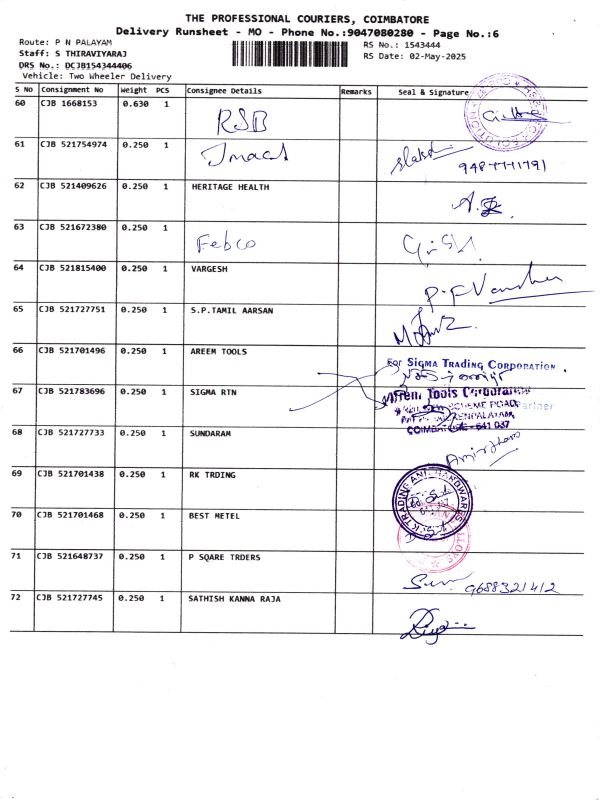 THE PROFESSIONAL COURIERS, COIMBATORE
Delivery Runsheet - MO - Phone No.:9047080280 - Page No.:6
Route: P N PALAYAM
RS No.: 1543444
Staff: S THIRAVIYARAJ
RS Date: 02-May-2025
DRS No.: DCJB154344406
Vehicle: Two Wheeler Delivery
S No Consignment No Weight PCS Consignee Details Remarks Seal & Signature
60 CJB 1668153 0.630 1 RSB
61 CJB 521754974 0.250 1
9487771791
62 CJB 521409626 0.250 1 HERITAGE HEALTH
63 CJB 521672380 0.250 1 Febco
64 CJB 521815400 0.250 1 VARGESH
65 CJB 521727751 0.250 1 S.P.TAMIL AARSAN
66 CJB 521701496 0.250 1 AREEM TOOLS
For SIGMA TRADING CORPORATION
67 CJB 521783696 0.250 1 SIGMA RTN
Tools Corporation
SCHEME ROAD, Partner
COIMBATORE - 641 037
68 CJB 521727733 0.250 1 SUNDARAM
69 CJB 521701438 0.250 1 RK TRDING
70 CJB 521701468 0.250 1 BEST METEL
71 CJB 521648737 0.250 1 P SQARE TRDERS
9688321412
72 CJB 521727745 0.250 1 SATHISH KANNA RAJA